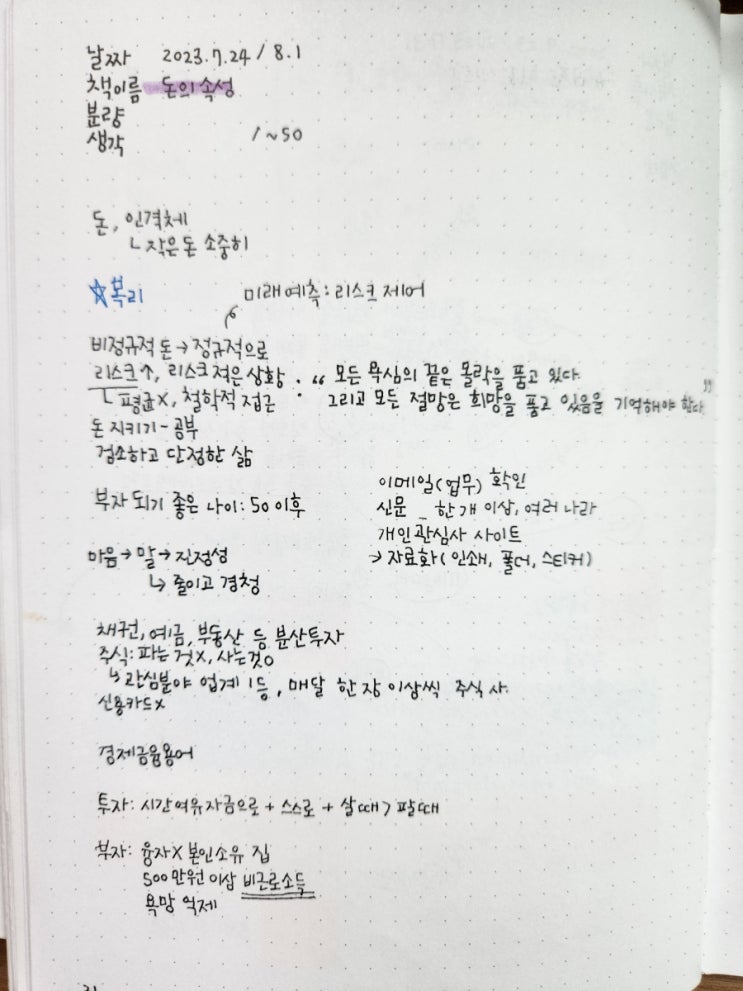 날짜 2023.7.24 / 8.1
책이름 돈의 속성
분량
생각 / ~50
돈, 인격체
ㄴ 작은 돈 소중히
☆복리
미래예측: 리스크 제어
비정규적 돈 → 정규적으로
리스크↑, 리스크 적은 상황 · “ 모든 욕심의 끝은 몰락을 품고 있다.
ㄴ 평균X, 철학적 접근 · 그리고 모든 절망은 희망을 품고 있음을 기억해야 한다 ”
돈 지키기 - 공부
검소하고 단정한 삶
부자 되기 좋은 나이: 50 이후
이메일(업무) 확인
신문 _ 한 개 이상, 여러 나라
개인 관심사 사이트
→ 자료화 (인쇄, 폴더, 스티커)
마음 → 말 → 진정성
↳ 줄이고 경청
채권, 예금, 부동산 등 분산투자
주식: 파는 것X, 사는것O
↳ 관심분야 업계 1등, 매달 한 장 이상씩 주식 사.
신용카드X
경제금융용어
투자: 시간여유자금으로 + 스스로 + 살때 > 팔때
부자: 융자X 본인소유 집
500만원 이상 비근로소득
욕망 억제